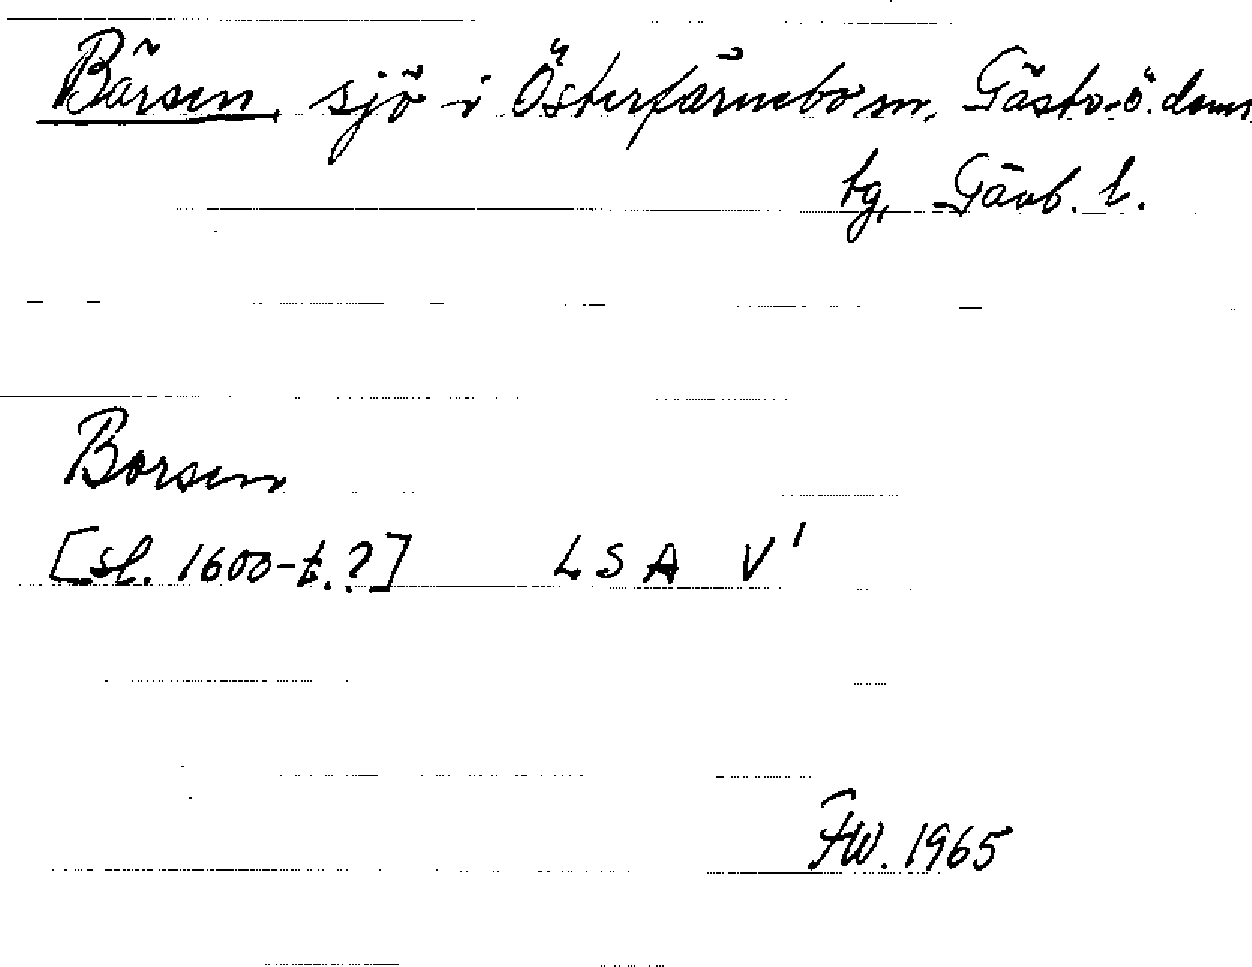 Bärsen, sjö i Österfärnebo sn, Gästr. ö. doms
tg, Gävb. l.
Borsen
[sl. 1600-t.?] LSA V 1
FW. 1965